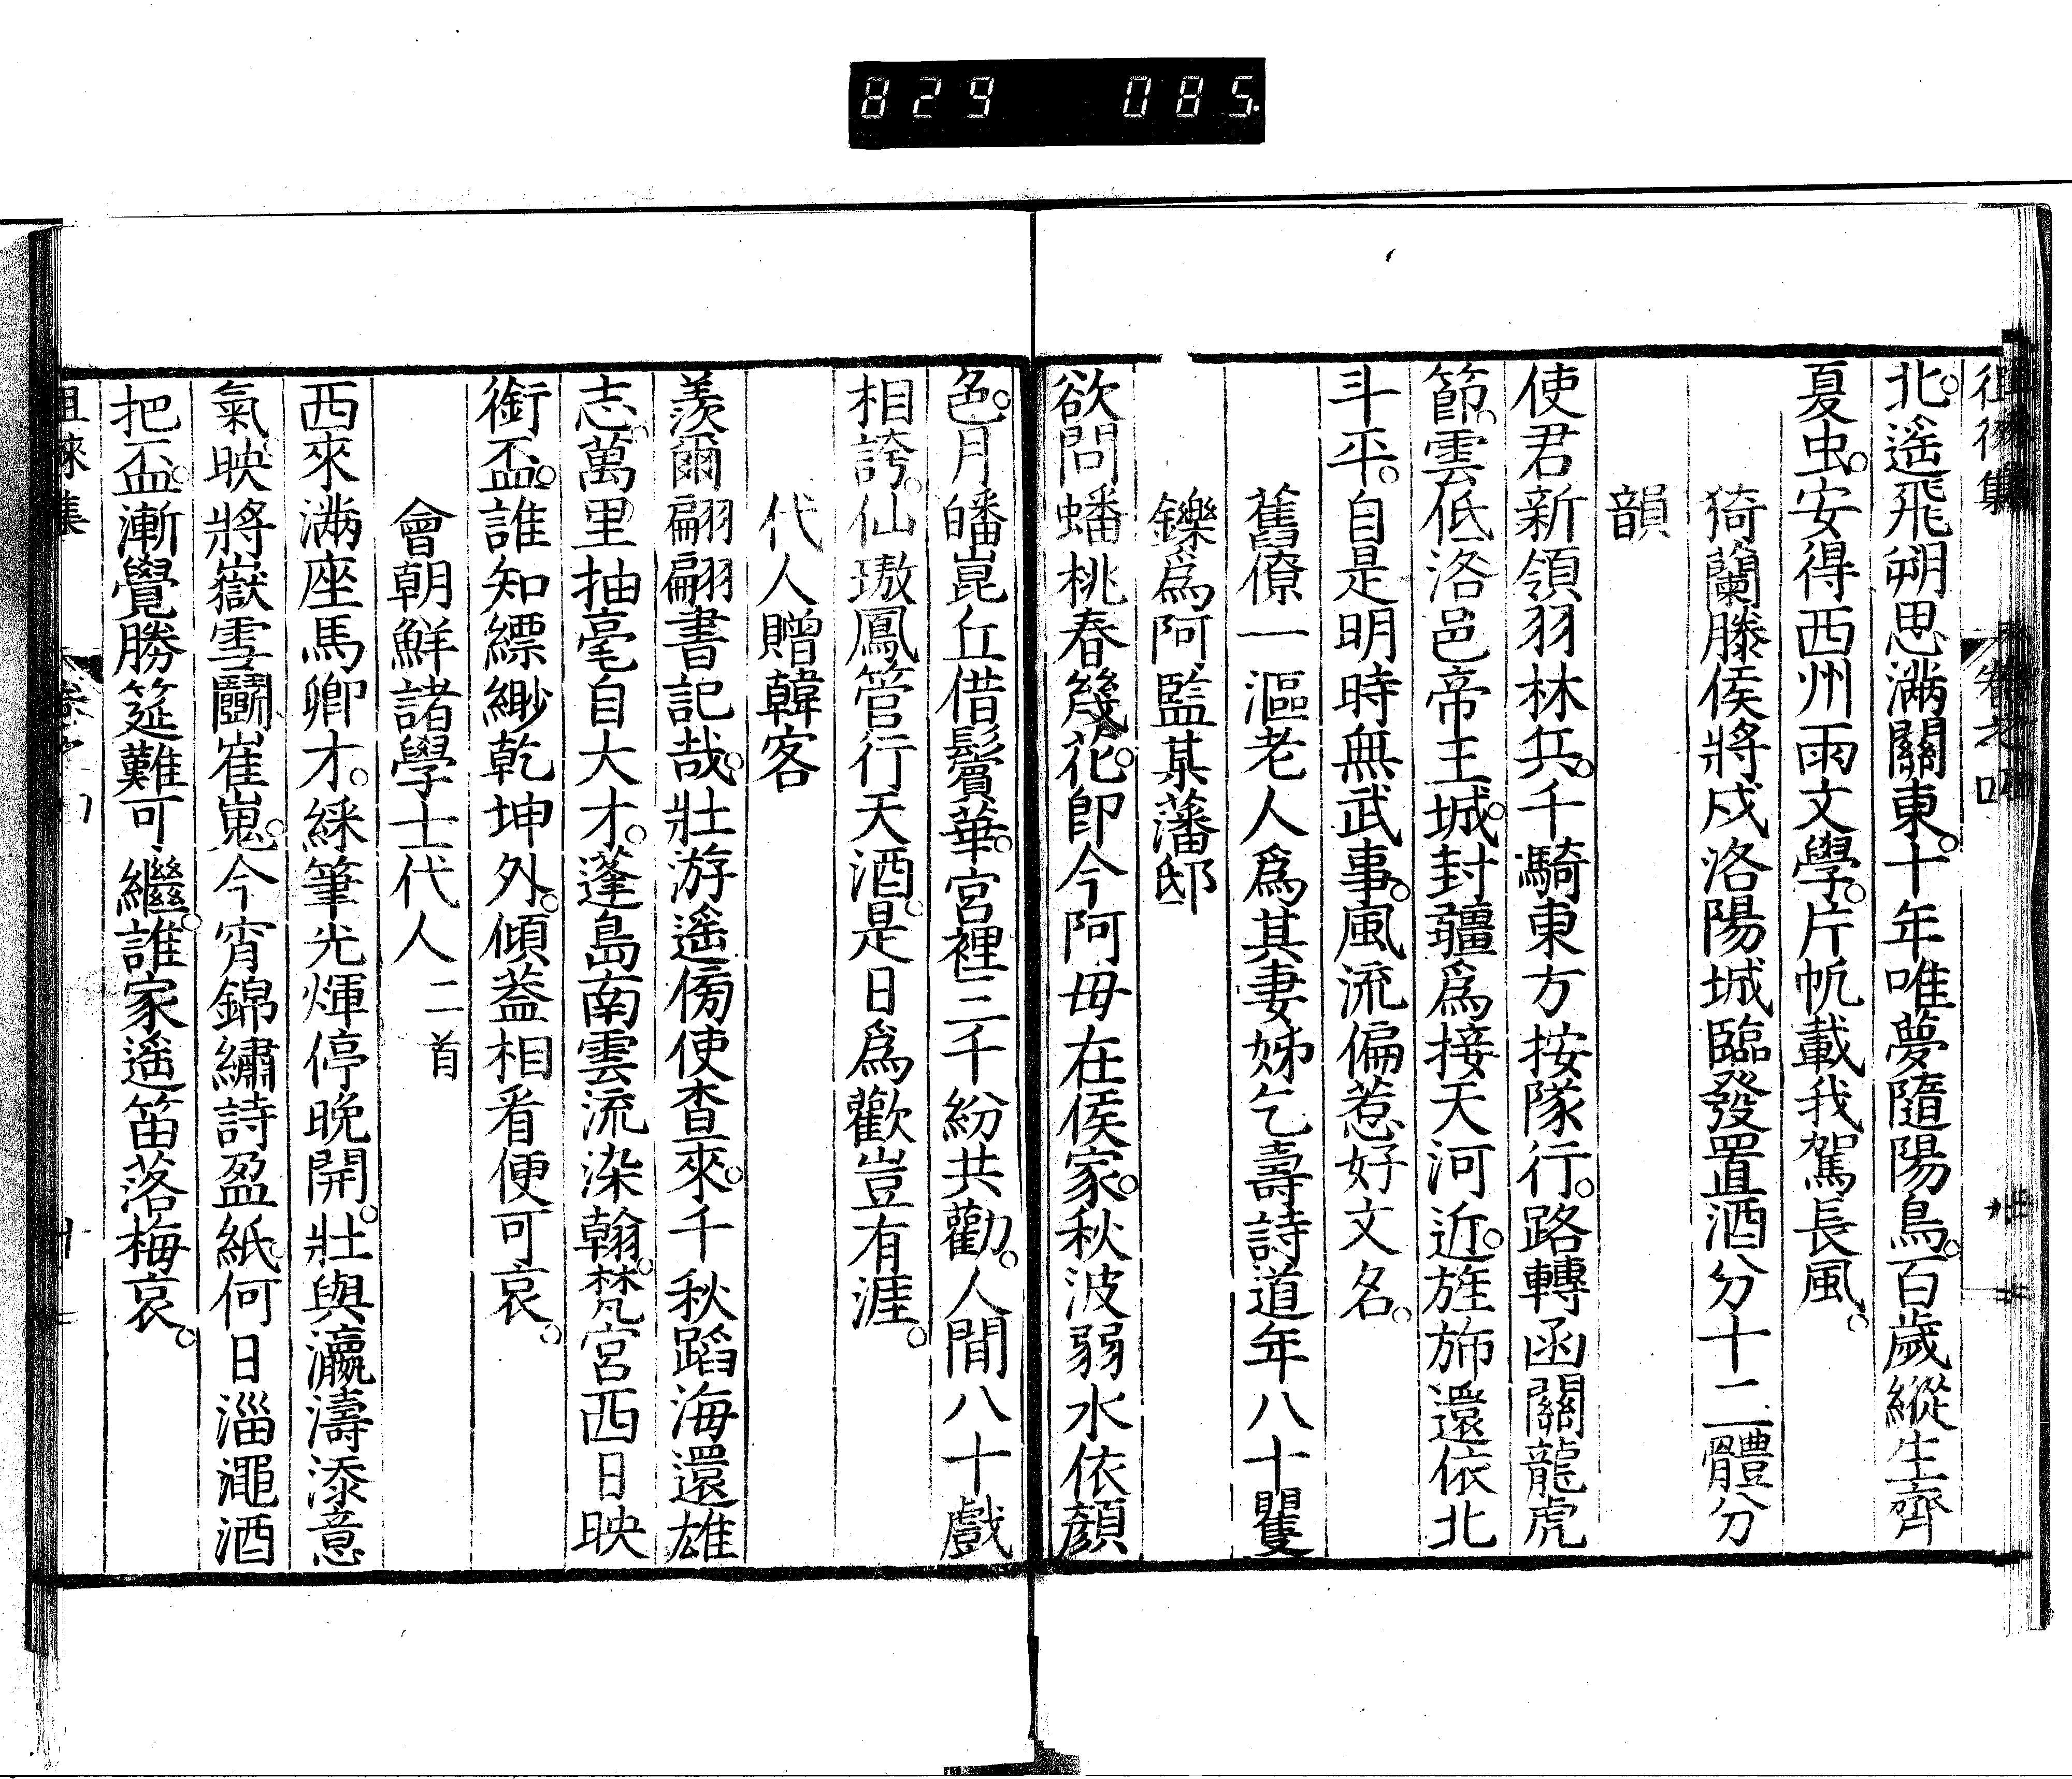 829 085.
徂徠集 卷之四
北。遙飛朔思滿關東。十年唯夢隨陽鳥。百歲縱生齊
夏虫。安得西州雨文學。片帆載我駕長風。
猗蘭滕侯將戍洛陽城臨發置酒分十二體分
韻
使君新領羽林兵。千騎東方按隊行。路轉函關龍虎
節。雲低洛邑帝王城。封疆爲接天河近。旌斾還依北
斗平。自是明時無武事。風流偏惹好文名。
舊僚一漚老人爲其妻姊乞壽詩道年八十矍
鑠爲阿監某藩邸
欲問蟠桃春幾花。即今阿母在侯家。秋波弱水依顏
色。月皤崑丘借鬢華。宮裡三千紛共勸。人間八十戲
相誇。仙璈鳳管行天酒。是日爲歡豈有涯。
代人贈韓客
羨爾翩翩書記哉。壯游遙傍使査來。千秋蹈海還雄
志。萬里抽毫自大才。蓬島南雲流染翰。梵宮西日映
銜盃。誰知縹緲乾坤外。傾蓋相看便可哀。
會朝鮮諸學士代人 二首
西來滿座馬卿才。綵筆光煇停晚開。壯與瀛濤添意
氣。映將嶽雪鬭崔嵬。今宵錦繡詩盈紙。何日淄澠酒
把盃。漸覺勝筵難可繼。誰家遙笛落梅哀。
徂徠集